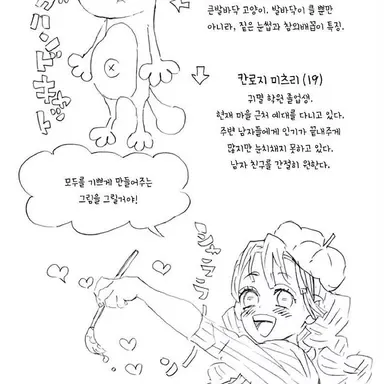 큰발바닥 고양이. 발바닥이 클 뿐만
아니라, 짙은 눈썹과 참외배꼽이 특징.
칸로지 미츠리 (19)
귀멸 학원 졸업생.
현재 마을 근처 예대를 다니고 있다.
주변 남자들에게 인기가 끝내주게
많지만 눈치채지 못하고 있다.
남자 친구를 간절히 원한다.
모두를 기쁘게 만들어주는
그림을 그릴거야!